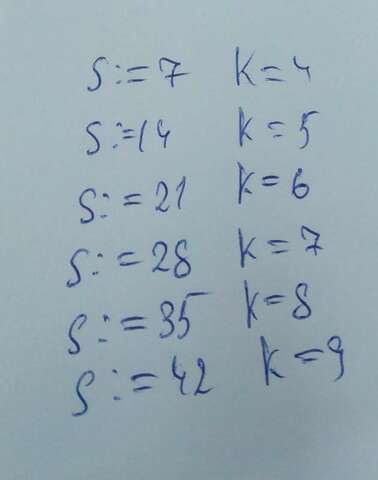 S:=7 K=4
S:=14 K=5
S:=21 K=6
S:=28 K=7
S:=35 K=8
S:=42 K=9